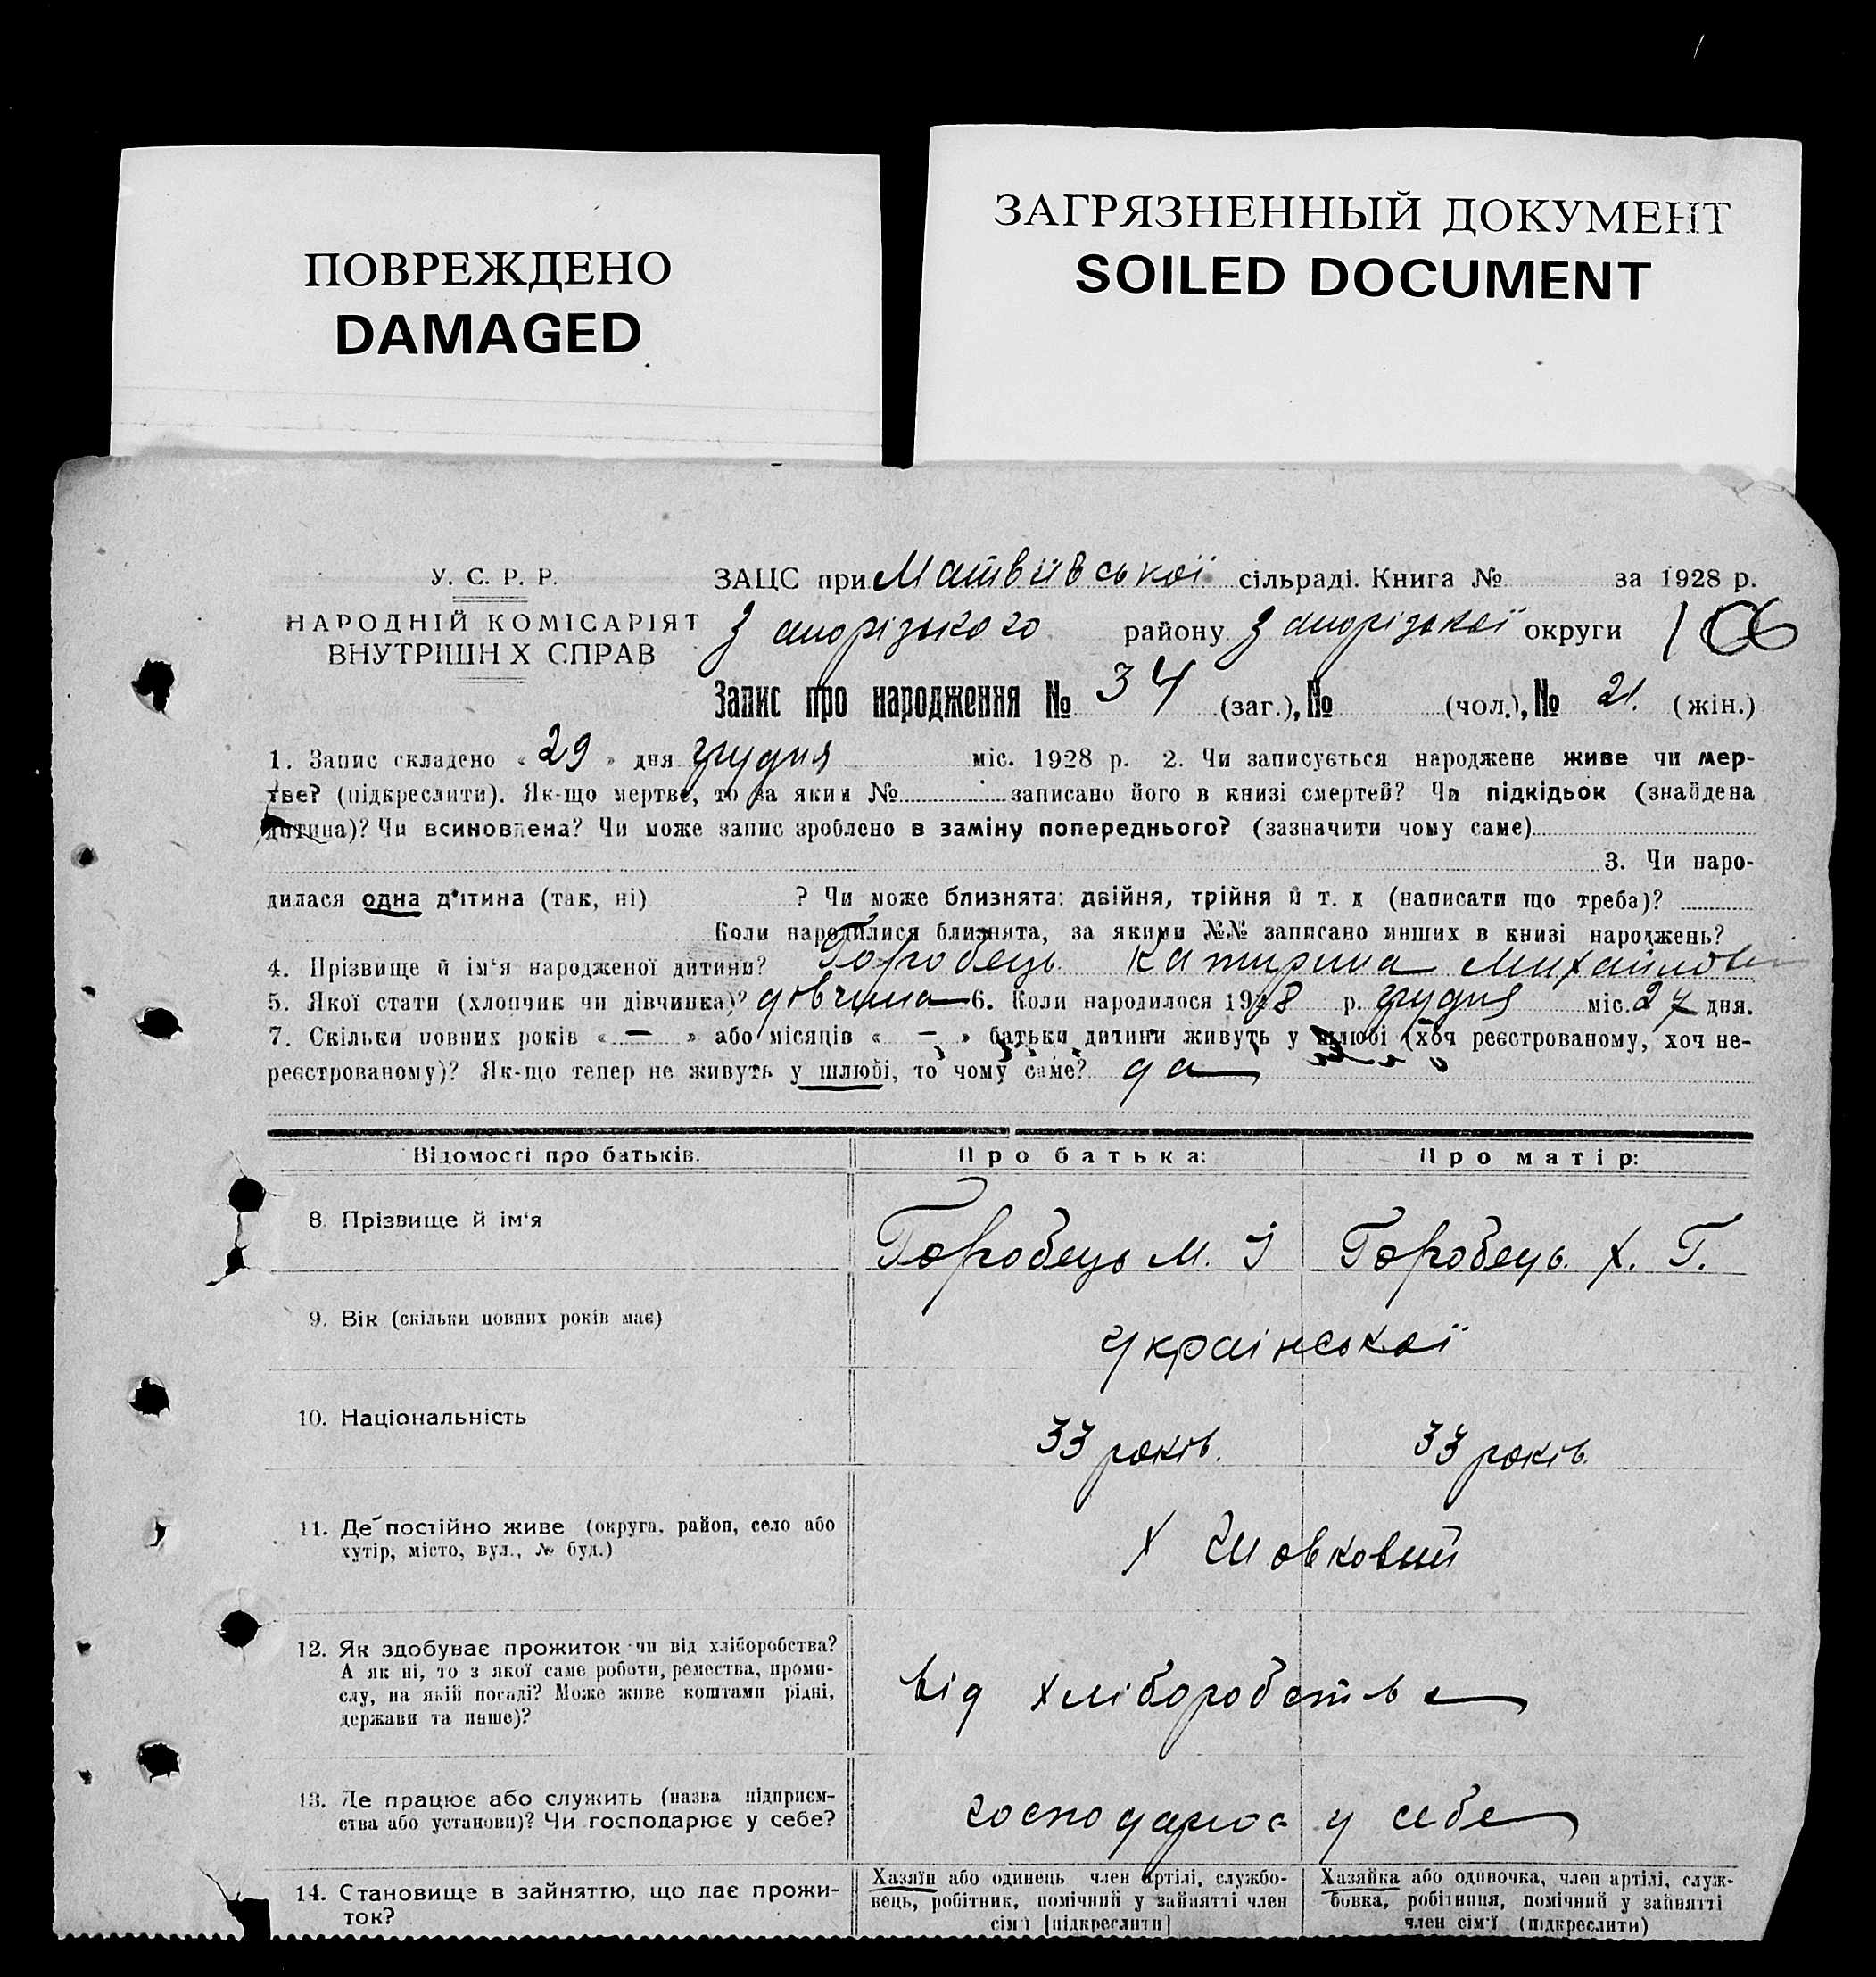 ПОВРЕЖДЕНО
DAMAGED
ЗАГРЯЗНЕННЫЙ ДОКУМЕНТ
SOILED DOCUMENT
У. С. Р. Р.
НАРОДНІЙ КОМІСАРІЯТ
ВНУТРІШН Х СПРАВ
ЗАЦС при Матвіївської сільраді. Книга № за 1928 р.
Запорізького району Запорізької округи 106
Запис про народження № 34 (заг.), № (чол.), № 21. (жін.)
1. Запис складено « 29 » дня грудня міс. 1928 р. 2. Чи записується народжене живе чи мер-
тве? (підкреслити). Як-що мертве, то за яким № записано його в книзі смертей? Чи підкідьок (знайдена
дитина)? Чи всиновлена? Чи може запис зроблено в заміну попереднього? (зазначити чому саме)
3. Чи наро-
дилася одна дитина (так, ні) ? Чи може близнята: двійня, трійня й т. д (написати що треба)?
Коли народилися близнята, за якими №№ записано инших в книзі народжень?
4. Прізвище й ім'я народженої дитини? Горобець Катирина Михайлов
5. Якої стати (хлопчик чи дівчинка)? дівчина 6. Коли народилося 1928 р. грудня міс. 27 дня.
7. Скільки повних років « — » або місяців « — » батьки дитини живуть у шлюбі (хоч реєстрованому, хоч не-
реєстрованому)? Як-що тепер не живуть у шлюбі, то чому саме? да
Відомості про батьків.
Про батька:
Про матір:
8. Прізвище й ім'я
Горобець М. І
Горобець Х. Г.
9. Вік (скільки повних років має)
української
10. Національність
33 років.
33 років.
11. Де постійно живе (округа, район, село або
хутір, місто, вул., № буд.)
Х Шовковий
12. Як здобуває прожиток чи від хліборобства?
А як ні, то з якої саме роботи, ремества, проми-
слу, на якій посаді? Може живе коштами рідні,
держави та инше)?
Від хліборобства
13. Де працює або служить (назва підприєм-
ства або установи)? Чи господарює у себе?
господарює у себе
14. Становище в зайняттю, що дає прожи-
ток?
Хазяїн або одинець член артілі, службо-
вець, робітник, помічний у зайнятті член
сім'ї [підкреслити]
Хазяйка або одиночка, член артілі, служ-
бовка, робітниця, помічний у зайнятті
член сім'ї (підкреслити)